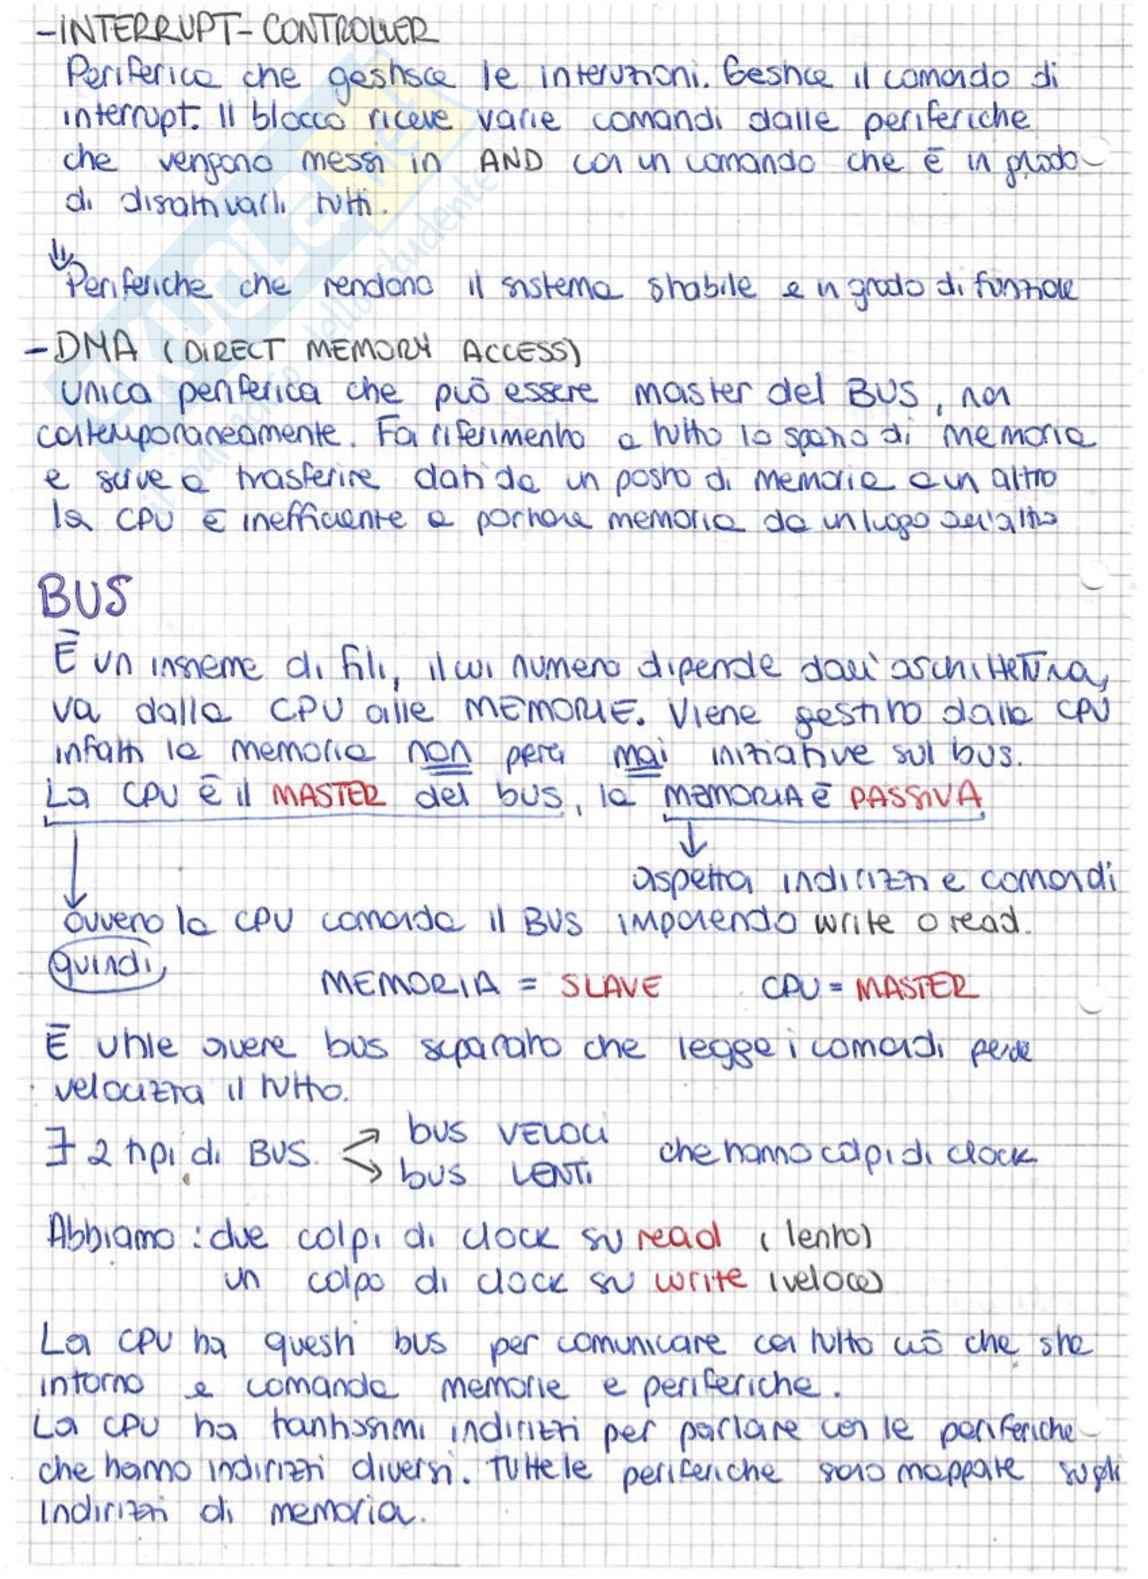 -INTERRUPT-CONTROLLER
Periferica che gestisce le interuzioni. Gestice il comando di
interrupt. Il blocco riceve varie comandi dalle periferiche
che vengono messi in AND con un comando che è in grado
di disattivarli tutti.
Periferiche che rendono il sistema stabile e in grado di funzionare
-DMA (DIRECT MEMORY ACCESS)
Unica periferica che può essere master del BUS, non
contemporaneamente. Fa riferimento a tutto lo spazio di memoria
e serve a trasferire dati da un posto di memoria a un altro
la CPU è inefficiente a portare memoria da un luogo all'altro
BUS
È un insieme di fili, il cui numero dipende dall'architettura,
va dalla CPU alle MEMORIE. Viene gestito dalla CPU
infatti la memoria non mai iniziative sul bus.
La CPU è il MASTER del bus, la MEMORIA È PASSIVA
aspetta indirizzi e comandi
ovvero la CPU comanda il BUS imponendo write o read.
quindi,
MEMORIA = SLAVE CPU = MASTER
È utile avere bus separato che legge i comandi
velocizza il tutto.
∃ 2 tipi di BUS. bus VELOCI
bus LENTI che hanno colpi di clock
Abbiamo: due colpi di clock su read (lento)
un colpo di clock su write (veloce)
La CPU ha questi bus per comunicare con tutto ciò che sta
intorno e comanda memorie e periferiche.
La CPU ha tantissimi indirizzi per parlare con le periferiche
che hanno indirizzi diversi. Tutte le periferiche sono mappate sugli
indirizzi di memoria.